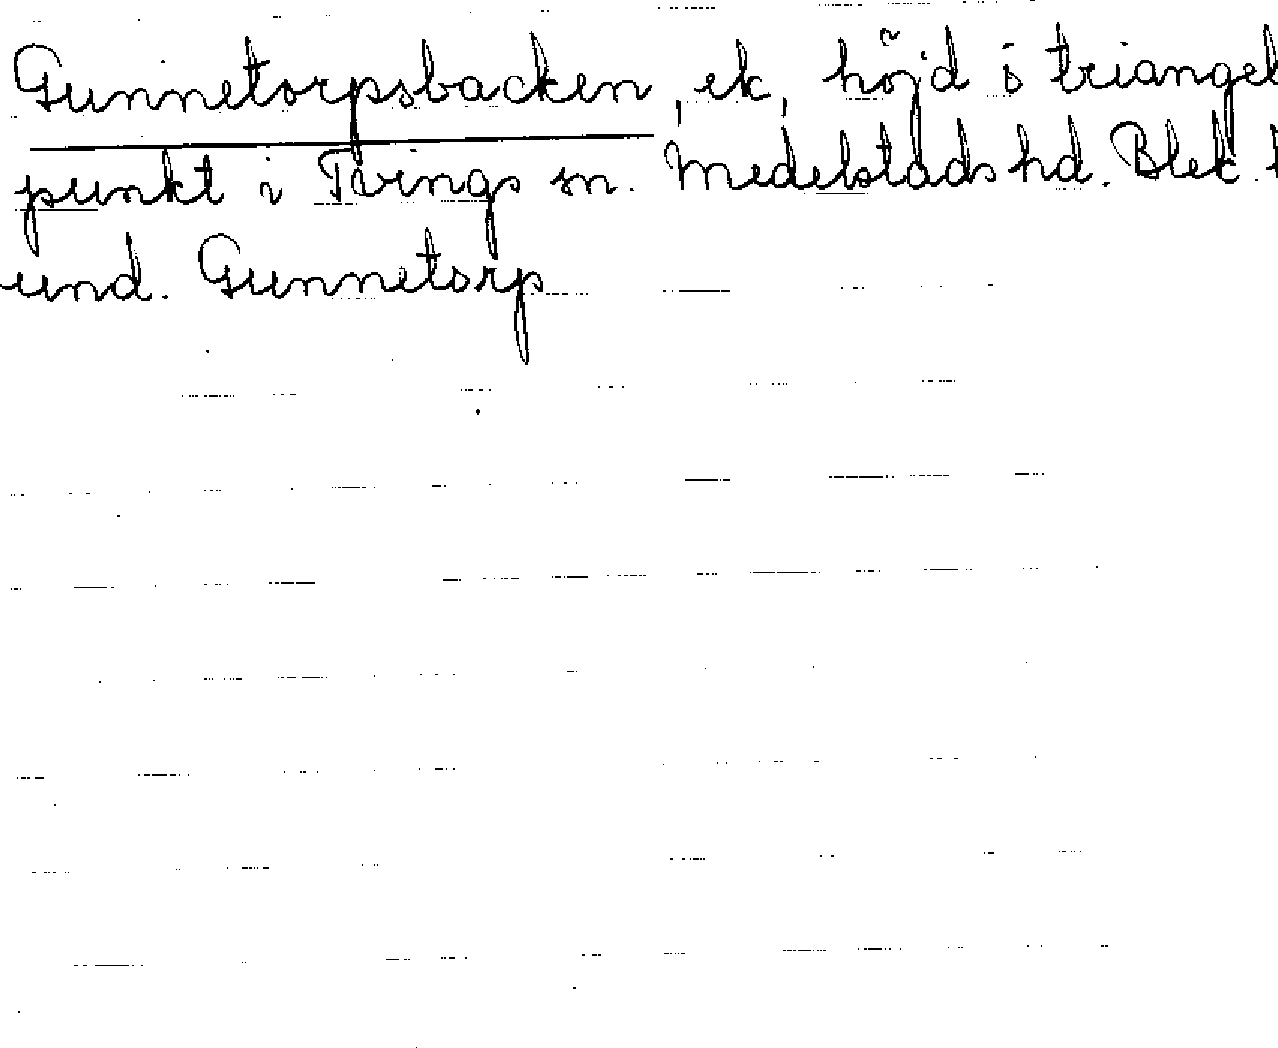 Gunnetorpsbacken, ek, höjd i triangel
punkt i Tvings sn. Medelstads hd. Blek. l
und. Gunnetorp